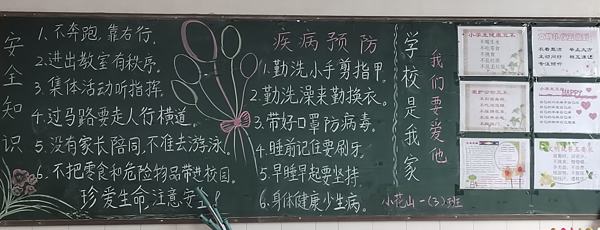 安全知识
1.不奔跑,靠右行。
2.进出教室有秩序。
3.集体活动听指挥。
4.过马路要走人行横道。
5.没有家长陪同,不准去游泳。
6.不把零食和危险物品带进校园。
珍爱生命,注意安全!
疾病预防
1.勤洗小手剪指甲。
2.勤洗澡来勤换衣。
3.带好口罩防病毒。
4.睡前记住要刷牙。
5.早睡早起要坚持。
6.身体健康少生病。
学校是我家
我们要爱他
小花山一(3)班